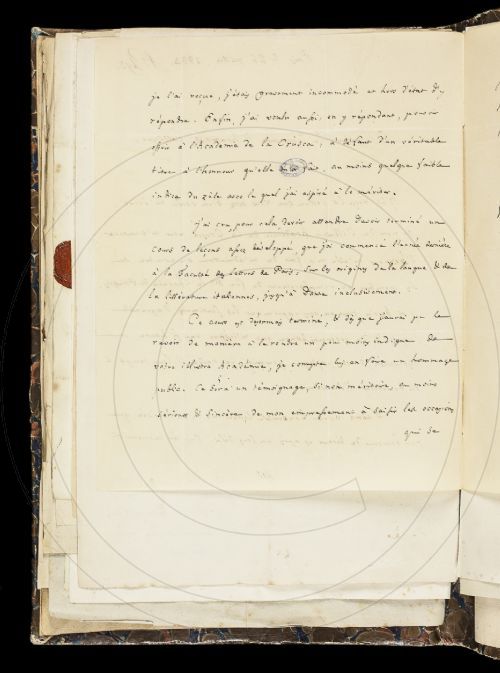 je l'ai reçue, j'étais gravement incommodé et hors d'état d'y
répondre. Enfin, j'ai voulu aussi, en y répondant, pouvoir
offrir à l'Académie de la Crusca, à défaut d'un véritable
titre à l'honneur qu'elle m'a fait, au moins quelque faible
indice du zèle avec lequel j'ai aspiré à le mériter.
j'ai cru, pour cela devoir attendre d'avoir terminé un
cours de leçons assez développé, que j'ai commencé l'année dernière
à la Faculté des lettres de Paris, sur les origines de la langue & de
la littérature italiennes, jusqu'à Dante inclusivement.
Ce cours est désormais terminé, & dès que j'aurai pu le
revoir de manière à le rendre un peu moins indigne de
votre illustre Académie, je compte lui en faire un hommage
public. Ce sera un témoignage, si non méritoire, au moins
sérieux & sincère, de mon empressement à saisir les occasions
qui se